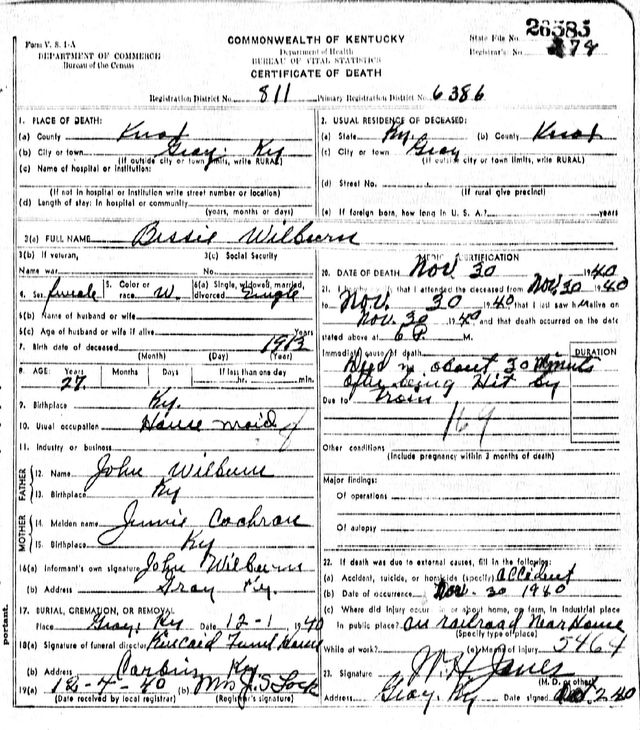 26585
Form V. S. 1-A
DEPARTMENT OF COMMERCE
Bureau of the Census
COMMONWEALTH OF KENTUCKY
Department of Health
BUREAU OF VITAL STATISTICS
CERTIFICATE OF DEATH
State File No.
Registrar's No. 278
Registration District No. 811 Primary Registration District No. 6386
1. PLACE OF DEATH:
(a) County Knox
(b) City or town Gray. Ky
(If outside city or town limits, write RURAL)
(c) Name of hospital or institution:
(If not in hospital or institution write street number or location)
(d) Length of stay: In hospital or community
(years, months or days)
2. USUAL RESIDENCE OF DECEASED:
(a) State Ky. (b) County Knox
(c) City or town Gray
(If outside city or town limits, write RURAL)
(d) Street No.
(If rural give precinct)
(e) If foreign born, how long in U. S. A.? years
3(a) FULL NAME Bessie Wilburn
3(b) If veteran, 3(c) Social Security
Name war No.
4. Sex female 5. Color or race W. 6(a) Single, widowed, married, divorced Single
6(b) Name of husband or wife
6(c) Age of husband or wife if alive Years
7. Birth date of deceased 1913
(Month) (Day) (Year)
8. AGE: Years Months Days If less than one day
27. hr. min.
9. Birthplace Ky.
10. Usual occupation House maid
11. Industry or business
FATHER
12. Name John Wilburn
13. Birthplace Ky
MOTHER
14. Maiden name Jennie Cochran
15. Birthplace Ky
16(a) Informant's own signature John Wilburn
(b) Address Gray Ky.
17. BURIAL, CREMATION, OR REMOVAL
Place Gray, Ky Date 12-1, 1940
18(a) Signature of funeral director Kincaid Funeral Home
(b) Address Corbin Ky
19(a) 12-4-40 (b) Mrs J. S. Lock
(Date received by local registrar) (Registrar's signature)
MEDICAL CERTIFICATION
20. DATE OF DEATH Nov 30 1940
21. I hereby certify that I attended the deceased from Nov, 30 1940
to Nov. 30 1940 that I last saw h alive on
Nov. 30 1940 and that death occurred on the date
stated above at 6 P. M.
Immediate cause of death DURATION
Died in about 30 Minuts
after being Hit by
Due to Train
169
Other conditions
(Include pregnancy within 3 months of death)
Major findings:
Of operations
Of autopsy
22. If death was due to external causes, fill in the following:
(a) Accident, suicide, or homicide (specify) accident
(b) Date of occurrence Nov. 30 1940
(c) Where did injury occur in or about home, on farm, in industrial place
In public place? on railroad Near Home
(Specify type of place)
While at work? (e) Means of injury 5464
23. Signature W H Jones
(M. D. or other)
Address Gray. Ky Date signed 2 40
portant.